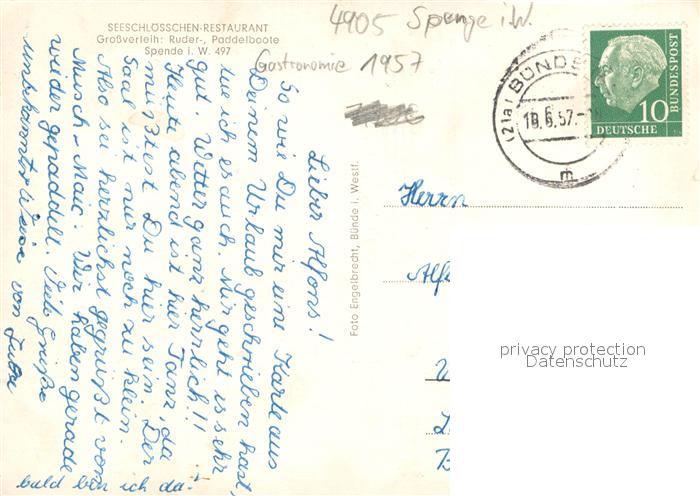 SEESCHLÖSSCHEN-RESTAURANT
Großverleih: Ruder-, Paddelboote
Spende i. W. 497
4905 Spenge i.W.
Gastronomie 1957
(21a) BÜNDE
18.6.57.-
m
10
DEUTSCHE
BUNDESPOST
Lieber Alfons!
So wie Du mir eine Karte aus
Deinem Urlaub geschrieben hast,
tue ich es auch. Mir geht es sehr
gut. Wetter ganz herrlich!!
Heute abend ist hier Tanz, da
müßtest Du hier sein. Der
Saal ist nur noch zu klein.
Also sei herzlichst gegrüßt von
Musch-Maic. Wir haben gerade
wieder gepaddelt. Viele Grüße
unbekannter Weise von
bald bin ich da!
Foto Engelbrecht, Bünde i. Westf.
Herrn
Alf
privacy protection
Datenschutz